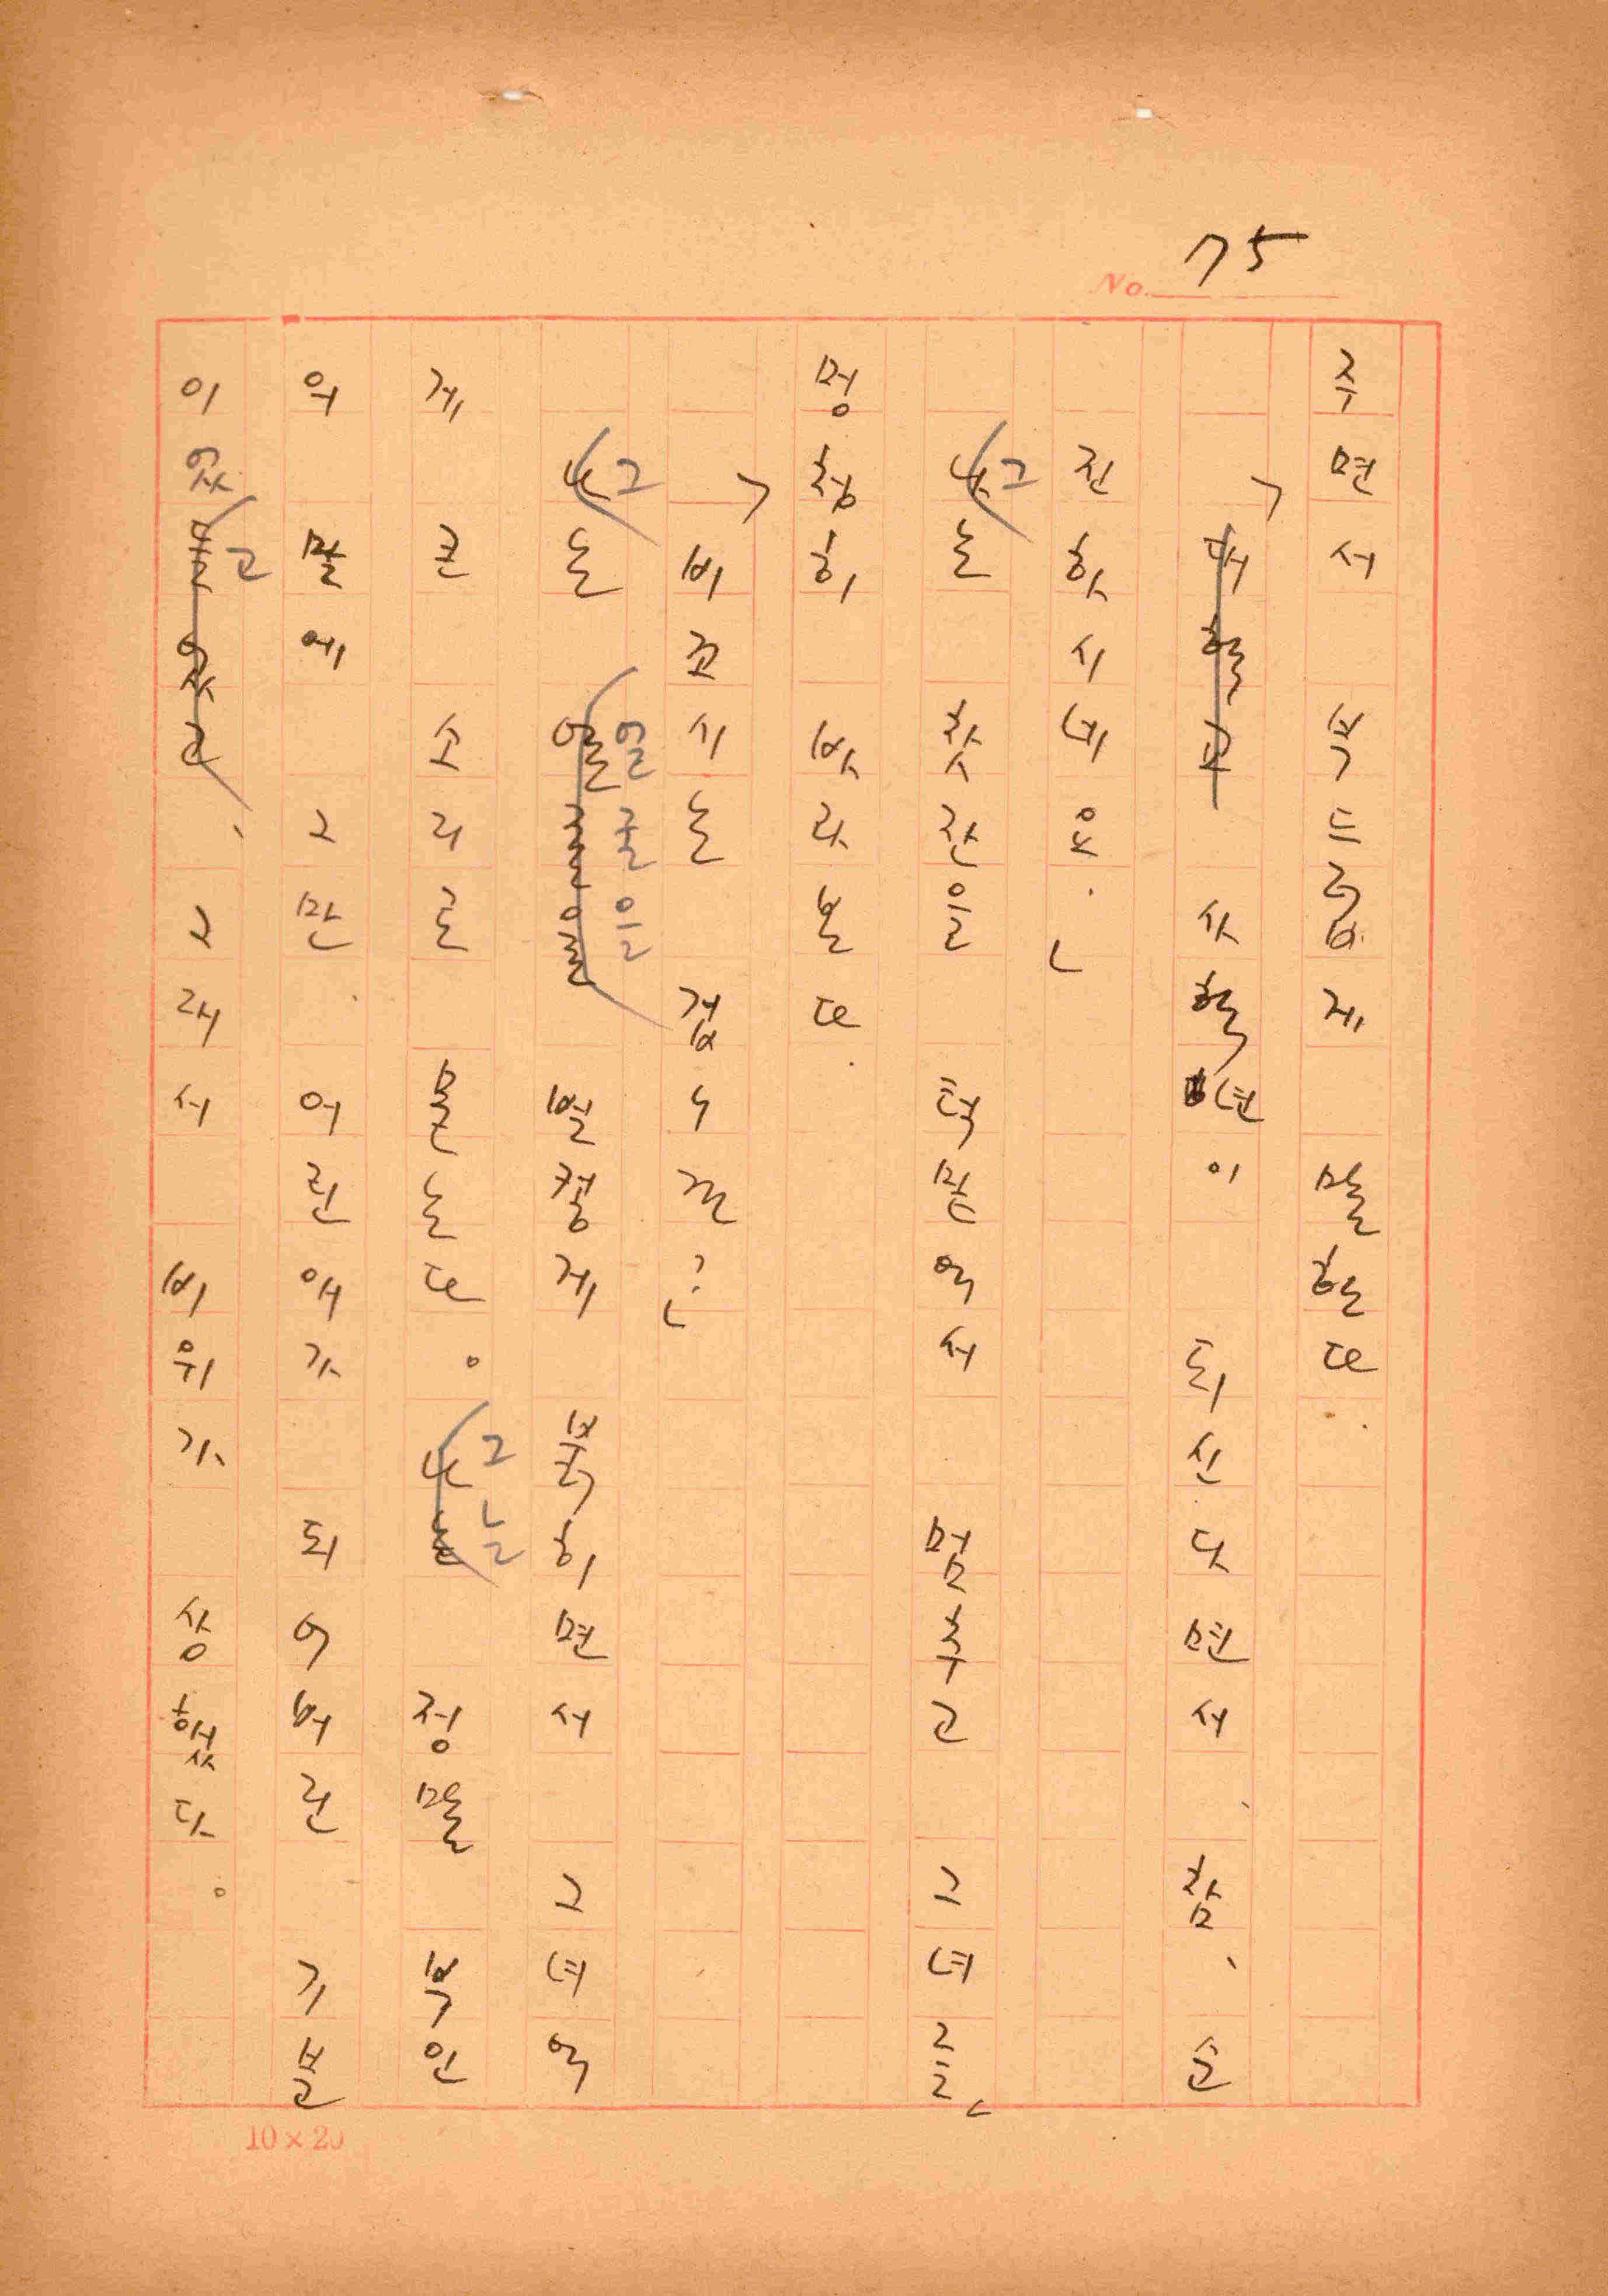 75
No.
주면서 부드럽게 말한다.
「사학년이 되신다면서、참、순
진하시네요.」
그는 찻잔을 턱밑에서 멈추고 그녀를
멍청히 바라본다.
「비꼬시는 겁니까?」
그는 얼굴을 벌겋게 붉히면서 그녀에
게 큰 소리로 묻는다。그는 정말 부인
의 말에 그만 어린애가 되어버린 기분
이었고、그래서 비위가 상했다。
10×20